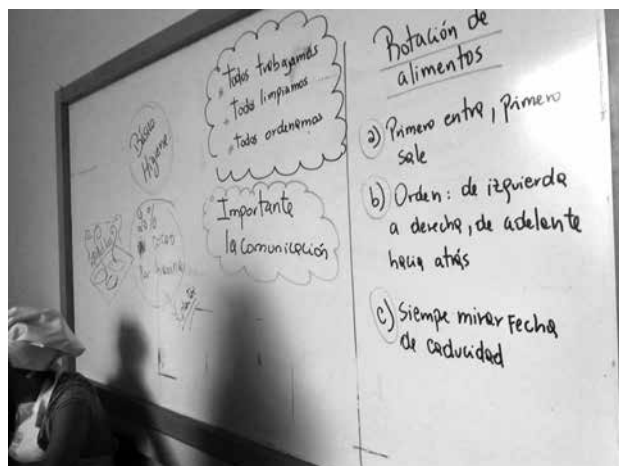 Todos trabajamos
Todos limpiamos
Todos ordenamos
Importante
la comunicación
Higiene
Rotación de
alimentos
a) Primero entra, primero
sale
b) Orden: de izquierda
a derecha, de adelante
hacia atrás
c) Siempe mirar Fecha
de caducidad